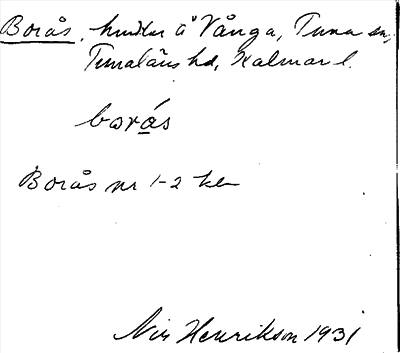 Borås, hmdlar å Vånga, Tuna sn,
Tunaläns hd, Kalmar l.
borås
Borås nr 1-2 kb
Nils Henrikson 1931